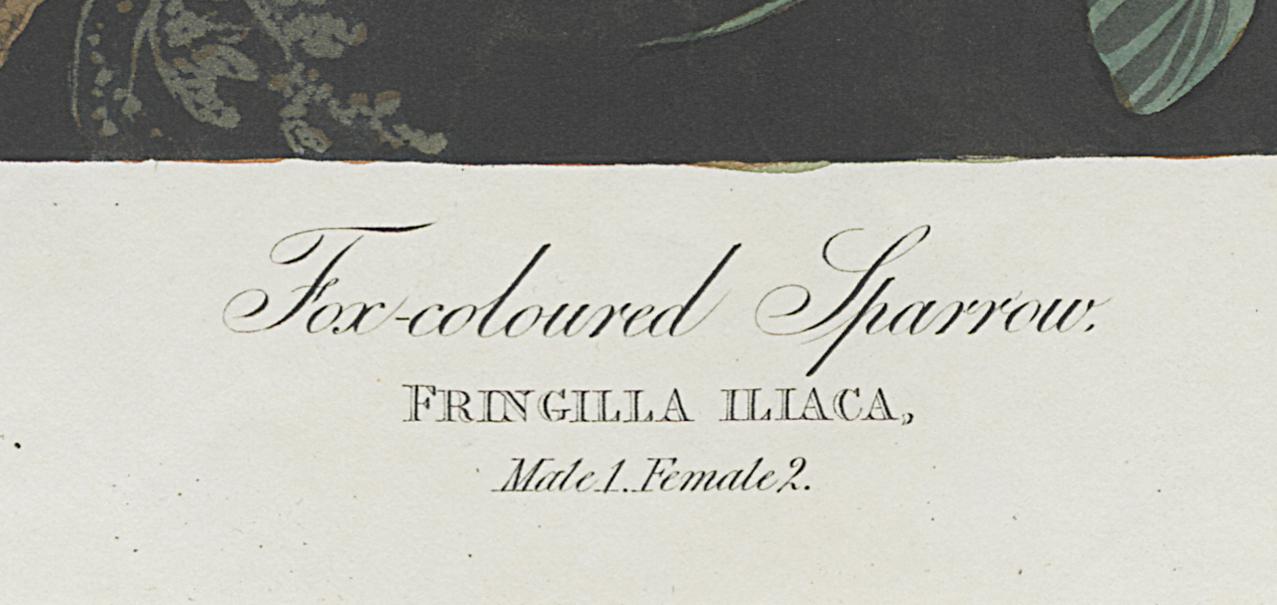 Fox-coloured Sparrow.
FRINGILLA ILIACA,
Male 1. Female 2.